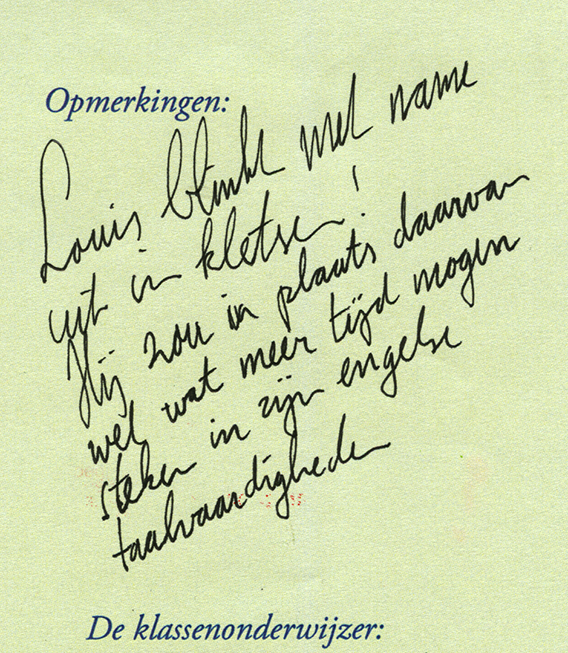 Opmerkingen:
Louis blinkt met name
uit in kletsen!
Hij zou in plaats daarvan
wel wat meer tijd mogen
steken in zijn engelse
taalvaardigheden
De klassenonderwijzer: